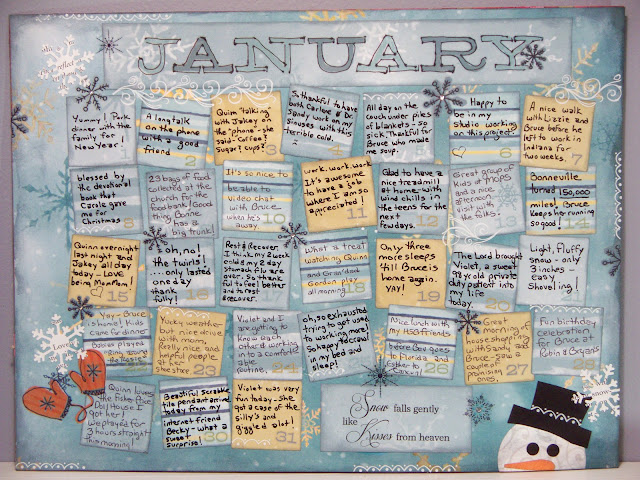 JANUARY
reflect
Yummy! Pork
dinner with the
family for
New Year!
A long talk
on the phone
with a good
friend 2
Quinn "talking
with Jakey on
the "phone" - she
said - Coffee?
Sugar? cups? 3
So thankful to have
both Carlene & Dr.
Sandy work on my
sinuses with this
terrible cold. 4
All day on the
couch under piles
of blankets - so
sick. Thankful for
Bruce who made
me soup.
Happy to
be in my
studio working
on this project!
6
A nice walk
with Lizzie and
Bruce before he
left to work in
Indiana for
two weeks. 7
blessed by
the devotional
book that
Carole gave
me for
Christmas 8
23 bags of food
collected at the
church for the
food bank! Good
thing Bonne
has a 9
big trunk!
It's so nice to
be able to
video chat
with Bruce
when he's
away. 10
work, work, work
It's awesome
to have a job
where I am so
appreciated! 11
Glad to have a
nice treadmill
at home, with
wind chills in
the teens for the
next 12
few days.
Great group of
gals at MOPS
and a nice
afternoon
visit with 13
the folks.
Bonneville
turned 150,000
miles! Bruce
Keeps her running
so good! 14
Quinn overnight
last night and
Jakey all day
today - LOVE
being MomMom!
15
oh, no!
the twirls!
....only lasted
one day
thank 16
fully!
Rest & Recover
I think my 2 week
cold & my 2 day
stomach flu are
over. So thank
ful to feel better
and in rest
& recover.
What a treat
watching Quinn
and Grandad
Gordon play
all morning 18
Only three
more sleeps
till Bruce is
home again.
yay! 19
The Lord brought
Violet, a sweet
98 yr old private
duty patient into
my life
today. 20
Light, fluffy
snow - only
3 inches -
easy
Shoveling!
21
Yay - Bruce
is home! Kids
came for dinner
babies played
Ring around the
Rosie!
Yucky weather
but nice drive
with mom.
Really nice and
helpful people
at her 23
shoe store.
Violet and I
are getting to
know each
other & working
in to a comfortable
routine. 24
oh, so exhausted
trying to get used
to working more
So happy to crawl
in my bed and
sleep! 25
Nice lunch with
my HSB friends
before Bev goes
to Florida and
Esther to 26
Great
morning of
house shopping
with Sandy and
Bruce - saw a
couple of
promising
ones. 27
Fun birthday
celebration
for Bruce
at
Robin & Bryan's
28
Quinn loves
the Fisher Price
Doll House I
got her!
we played for
3 hours straight
this morning!
Beautiful Scrabble
tile pendant arrived
today from my
internet friend
Becky - what a
sweet 30
surprise!
Violet was very
fun today - She
got a case of the
silly's and
giggled a lot!
31
Snow falls gently
like
Kisses from heaven
Love
snow